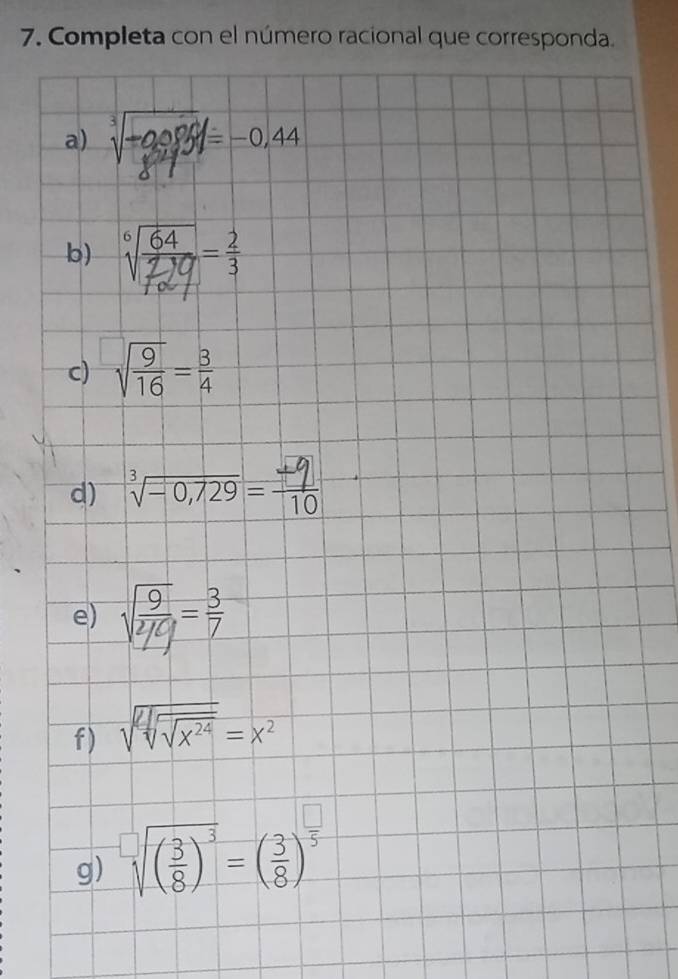 7. Completa con el número racional que corresponda.
a) ∛-0,0851 = -0,44
84
b) ⁶√(64/729) = 2/3
c) □√(9/16) = 3/4
d) ∛-0,729 = -9/10
e) √(9/49) = 3/7
f) √(⁴√(√x²⁴)) = x²
g) □√((3/8)³) = (3/8)^(□/5)